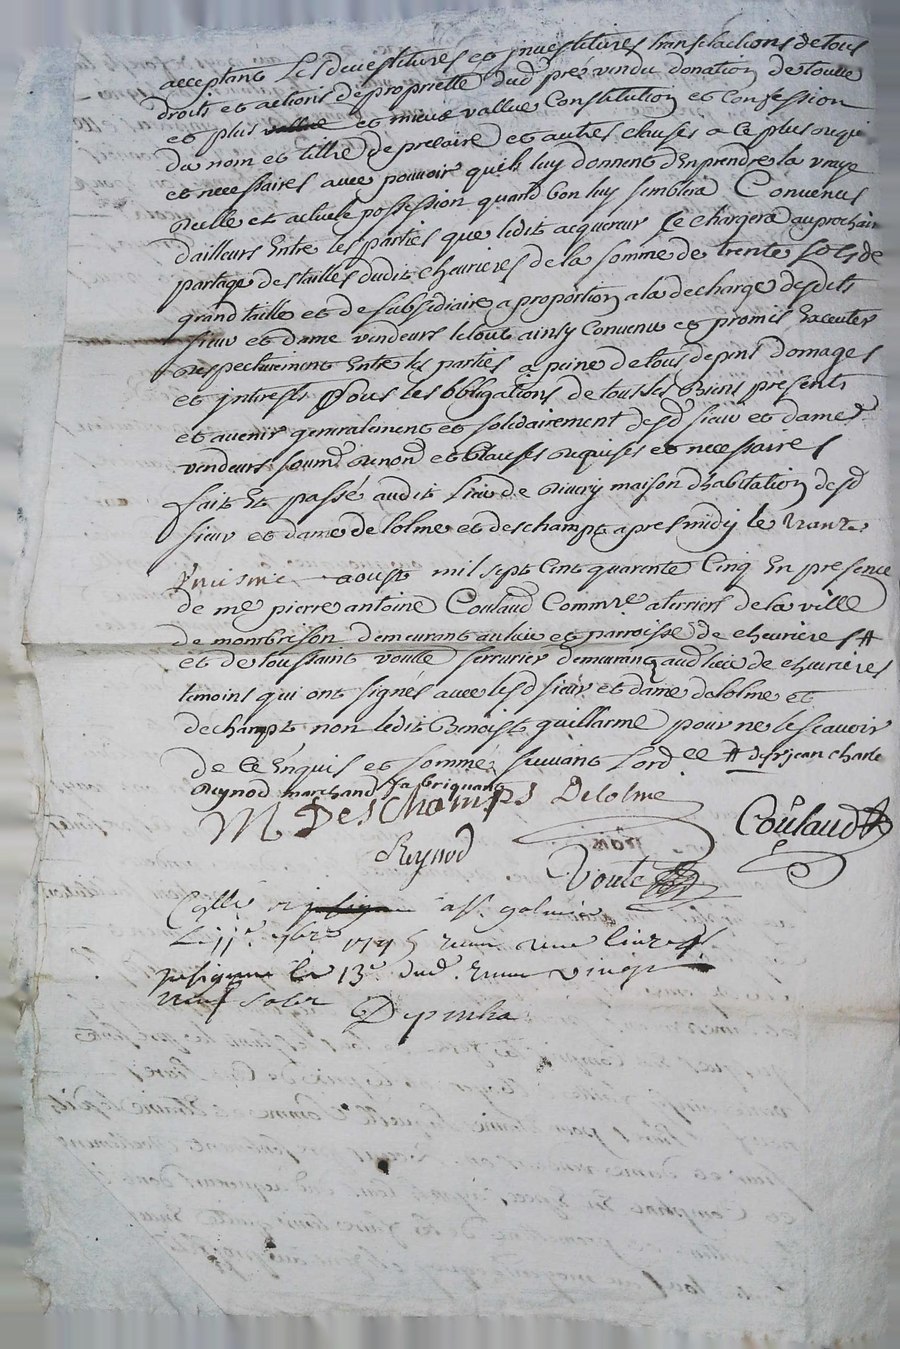 acceptant les devestitures et investitures translactions de tous
droits et actions de proprietté dud pré vendu donation de toutte
et plus vallue et mieux vallue Constitution et Confession
du nom et tiltre de precaire et autres clauses a ce plus requi
et necessaires avec pouvoir quils luy donnent d'En prendre la vraye
reelle et actuele possession quand bon luy semblera Convenus
d'ailleurs Entre les parties que ledit acquereur se chargera au prochain
partage des tailles dudit chevrieres de la somme de trente sols de
grand taille et de subsidiaire a proportion a la decharge desdits
sieur et dame vendeurs le tout ainsy Convenu et promis Executer
respectivement Entre les parties a peine de tous depens domages
et interests sous les obligations de tous les Biens presents
et avenir generalement et solidairement desd sieur et dame
vendeurs soumr renonc et Clauses requises et necessaires
fait Et passé audit lieu de maison d'habitation desd
sieur et dame delolme et deschamps apres midy le trante
unieme aoust mil sept Cent quarente Cinq En presence
de me pierre antoine Coulaud Commre a terriers de la ville
de montbrison demeurant au lieu et parroisse de chevrieres #
et de toussaint voutte serrurier demeurant aud lieu de chevrieres
temoins qui ont signés avec lesd sieur et dame delolme et
dechampt non ledit Benoist guillarme pour ne le scavoir
de Ce Enquis et sommé suivant Lord ce # de sr jean charle
Reynod marchand fabriquant
M DesChamps Delolme
Coulaud
Reynod
Voute
a st. galmier
Le 11e 9bre 1745 neuf livres
le 13e dud. vingt
neuf sols